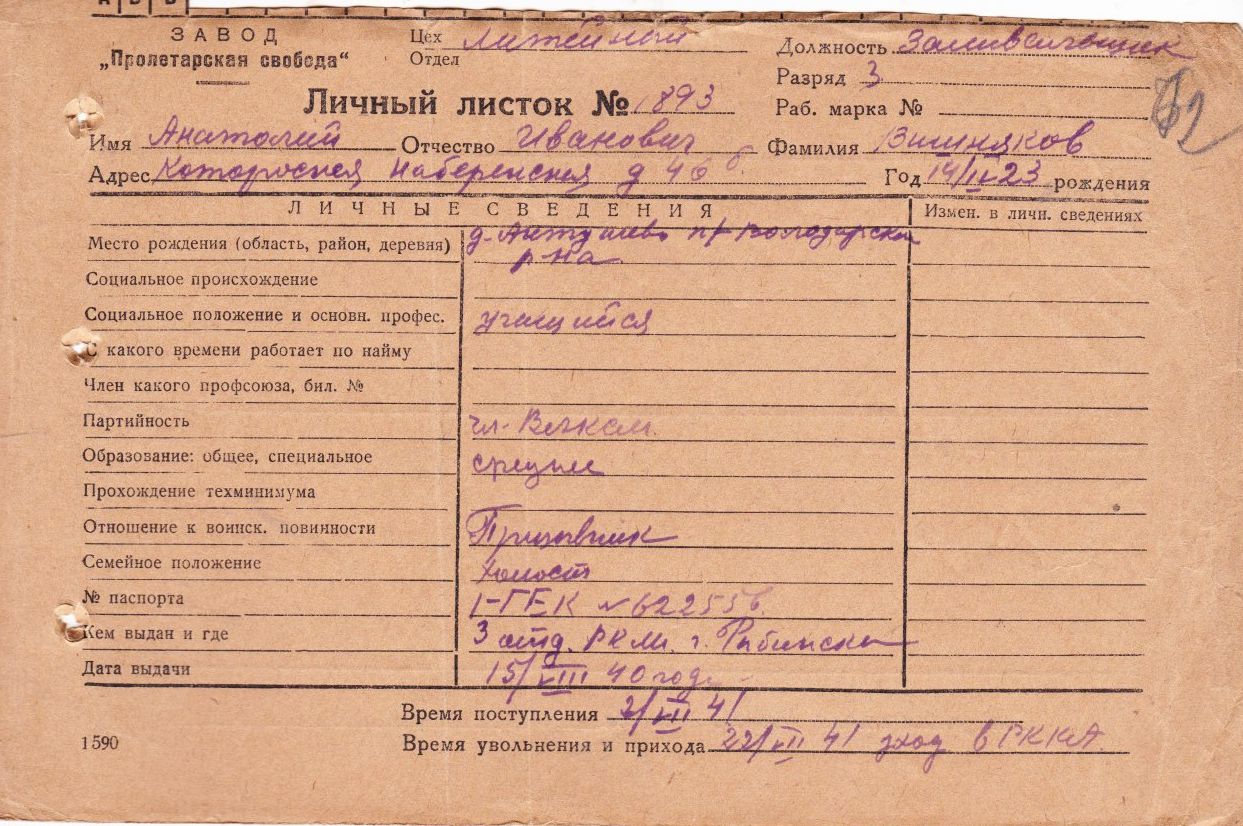 А Б В
ЗАВОД
„Пролетарская свобода“
Цех Литейный
Отдел
Должность
Разряд 3
Личный листок № 1893
Раб. марка №
Имя Анатолий Отчество Иванович Фамилия Вишняков
Адрес Которосная набережная д 46
Год 14/II-23 рождения
ЛИЧНЫЕ СВЕДЕНИЯ
Измен. в личн. сведениях
Место рождения (область, район, деревня) д-
р-на
Социальное происхождение
Социальное положение и основн. професс. учащийся
С какого времени работает по найму
Член какого профсоюза, бил. №
Партийность чл-
Образование: общее, специальное средне
Прохождение техминимума
Отношение к воинск. повинности Призывник
Семейное положение холост
№ паспорта I-ГЕК №622556
Кем выдан и где 3 отд. РКМ. г. Рыбинска
Дата выдачи 15/VIII 40 год
Время поступления 2/VII 41
1590
Время увольнения и прихода 22/VII 41 в РККА